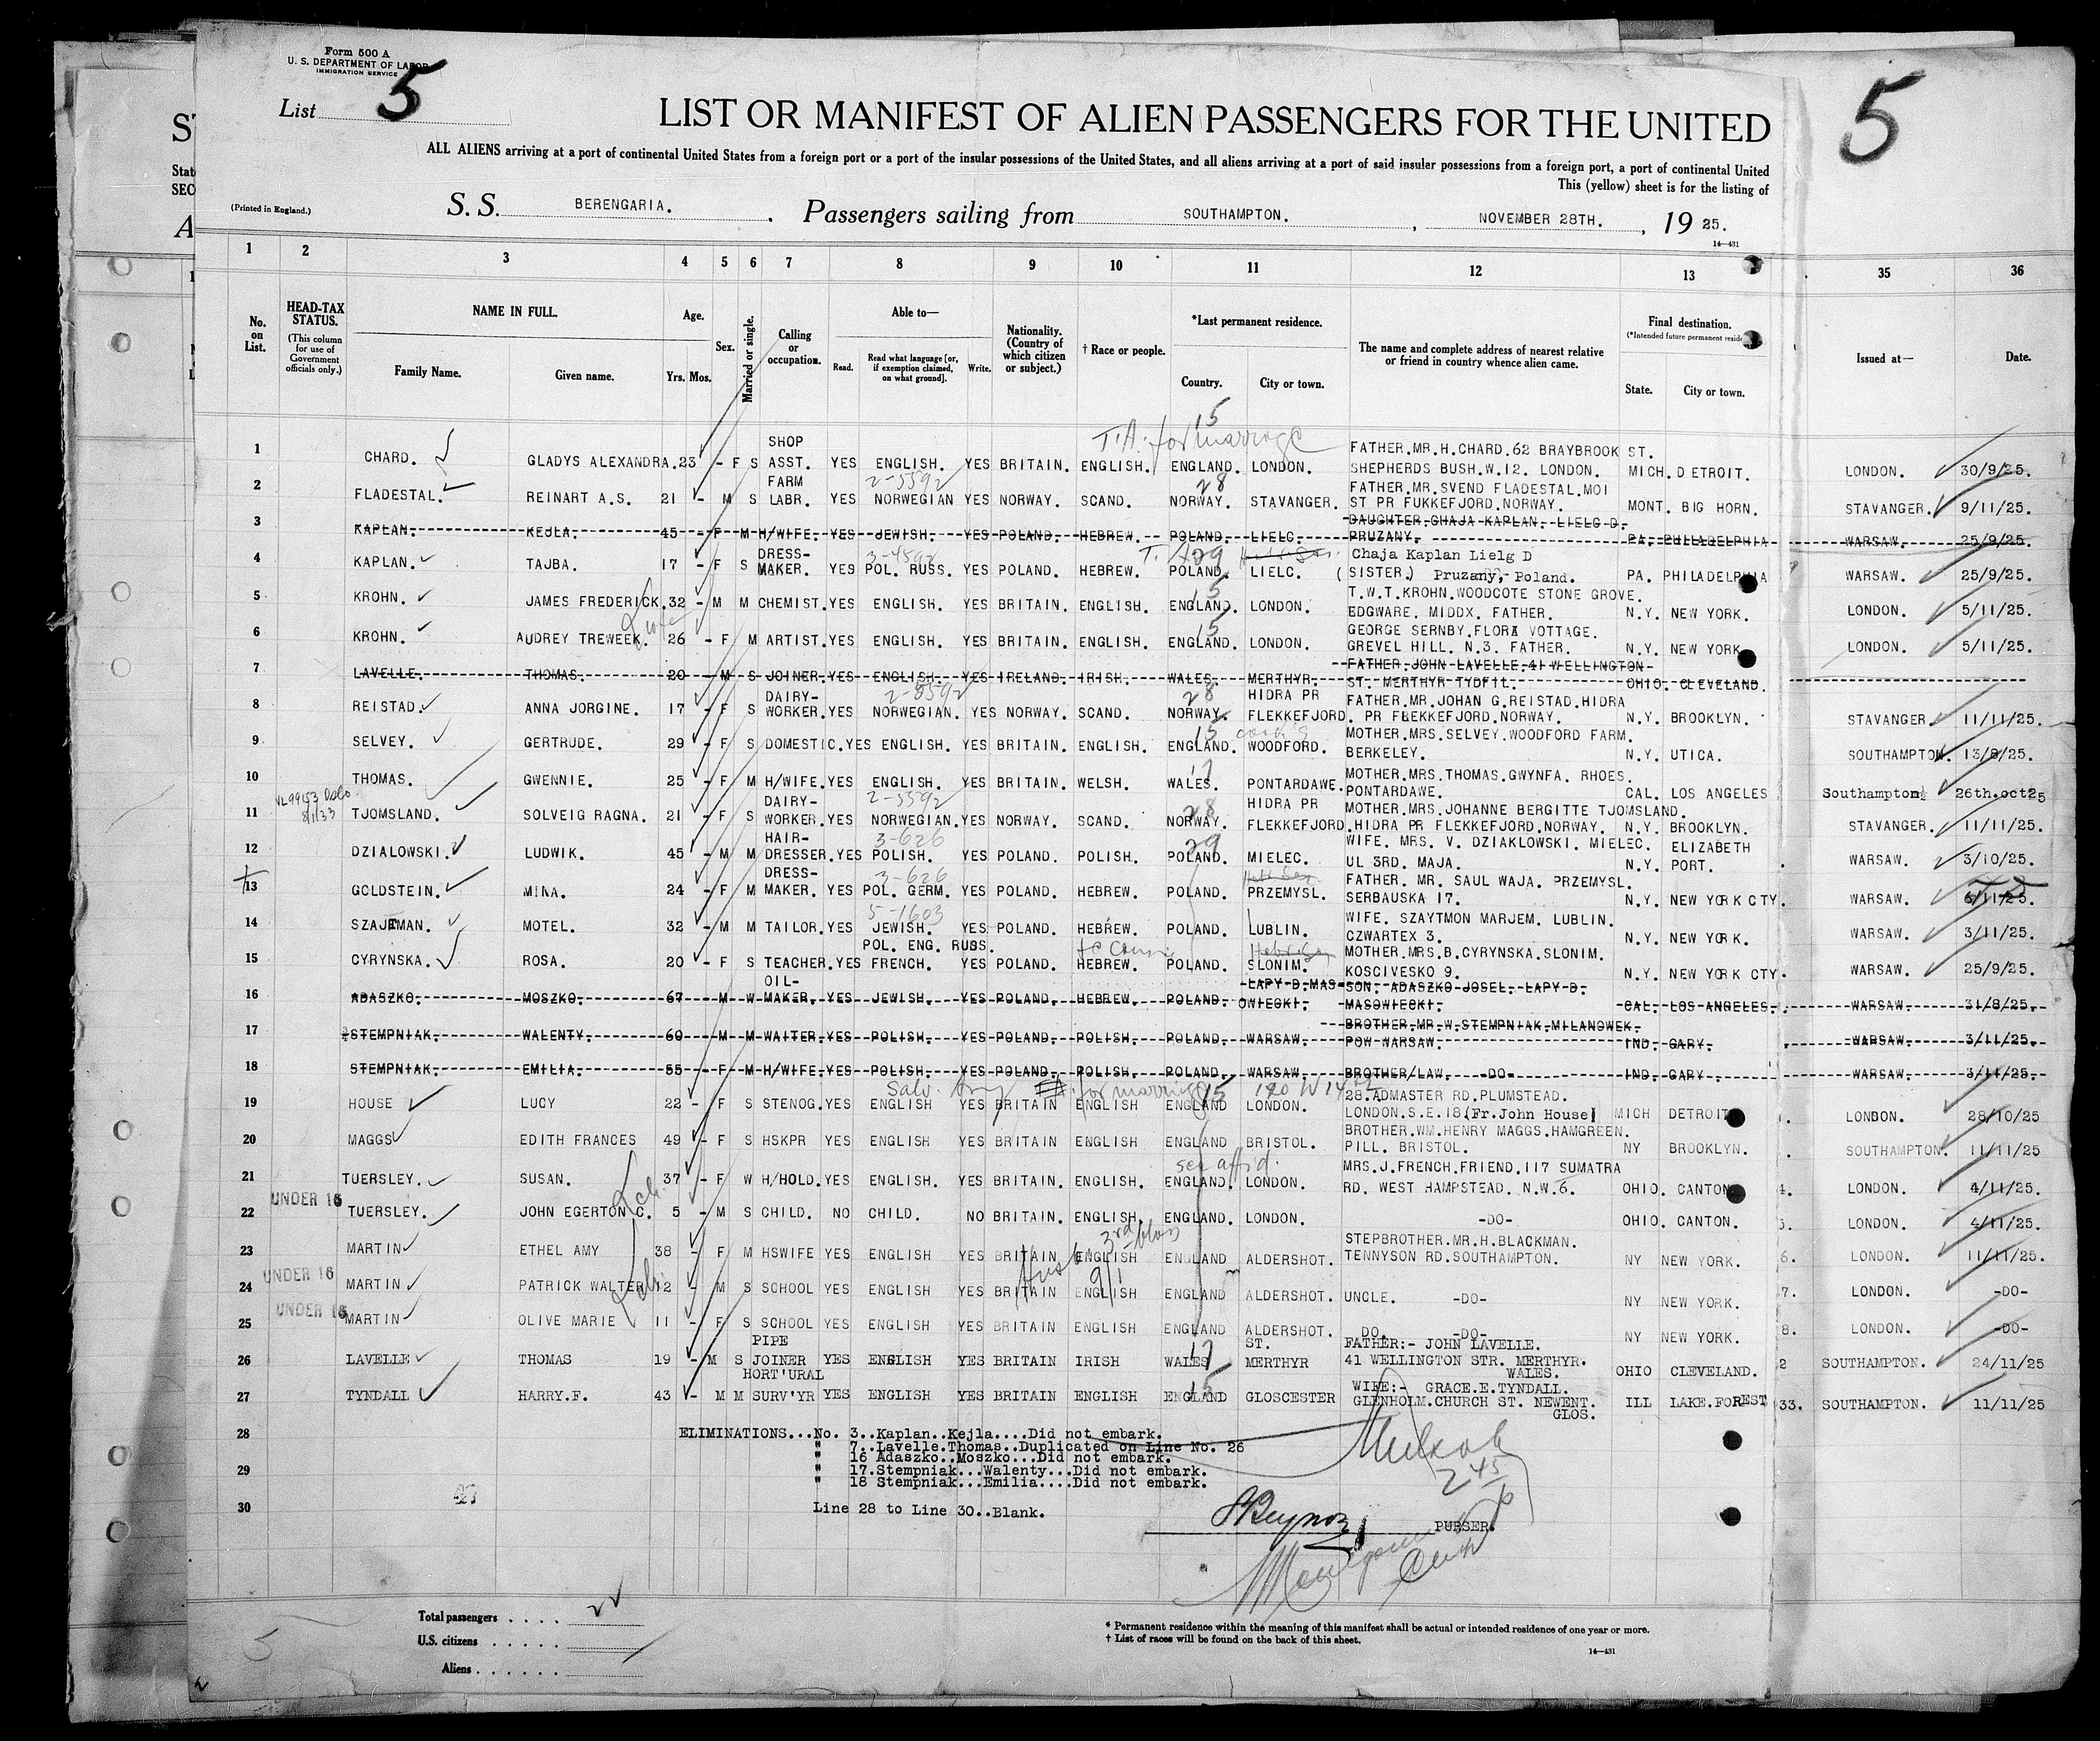 Form 500 A
U. S. DEPARTMENT OF LABOR
IMMIGRATION SERVICE
List 5
5
LIST OR MANIFEST OF ALIEN PASSENGERS FOR THE UNITED
ALL ALIENS arriving at a port of continental United States from a foreign port or a port of the insular possessions of the United States, and all aliens arriving at a port of said insular possessions from a foreign port, a port of continental United
This (yellow) sheet is for the listing of
(Printed in England.)
S. S. BERENGARIA. , Passengers sailing from SOUTHAMPTON. , NOVEMBER 28TH. , 19 25.
14—431
1 2 3 4 5 6 7 8 9 10 11 12 13 35 36
No. on List.
HEAD-TAX STATUS.
(This column for use of Government officials only.)
NAME IN FULL.
Family Name. Given name.
Age.
Yrs. Mos.
Sex.
Married or single.
Calling or occupation.
Able to—
Read. Read what language [or, if exemption claimed, on what ground]. Write.
Nationality. (Country of which citizen or subject.)
† Race or people.
*Last permanent residence.
Country. City or town.
The name and complete address of nearest relative or friend in country whence alien came.
Final destination.
State. City or town.
Issued at— Date.
15
T.A. for marriage
1 CHARD. GLADYS ALEXANDRA. 23 - F S SHOP ASST. YES ENGLISH. YES BRITAIN. ENGLISH. ENGLAND. LONDON. FATHER.MR.H.CHARD.62 BRAYBROOK ST. SHEPHERDS BUSH.W.12. LONDON. MICH. DETROIT. LONDON. 30/9/25.
2-5592 28
2 FLADESTAL. REINART A.S. 21 - M S FARM LABR. YES NORWEGIAN YES NORWAY. SCAND. NORWAY. STAVANGER. FATHER.MR.SVEND FLADESTAL.MOI ST PR FUKKEFJORD.NORWAY. MONT. BIG HORN. STAVANGER. 9/11/25.
3 KAPLAN. KEJLA. 45 - F M H/WIFE. YES JEWISH. YES POLAND. HEBREW. POLAND. LIELC. DAUGHTER.GHAJA KAPLAN. LIELG D. PRUZANY. PA. PHILADELPHIA WARSAW. 25/9/25.
3-4592 29
4 KAPLAN. TAJBA. 17 - F S DRESS-MAKER. YES POL. RUSS. YES POLAND. HEBREW. POLAND. LIELC. Chaja Kaplan Lielg D (SISTER.) Pruzany, Poland. PA. PHILADELPHIA WARSAW. 25/9/25.
15
5 KROHN. JAMES FREDERICK. 32 - M M CHEMIST. YES ENGLISH. YES BRITAIN. ENGLISH. ENGLAND. LONDON. T.W.T.KROHN.WOODCOTE STONE GROVE. EDGWARE. MIDDX. FATHER. N.Y. NEW YORK. LONDON. 5/11/25.
wife 15
6 KROHN. AUDREY TREWEEK. 26 - F M ARTIST. YES ENGLISH. YES BRITAIN. ENGLISH. ENGLAND. LONDON. GEORGE SERNBY.FLORA VOTTAGE. GREVEL HILL. N.3. FATHER. N.Y. NEW YORK LONDON. 5/11/25.
7 LAVELLE. THOMAS. 20 - M S JOINER. YES ENGLISH. YES IRELAND. IRISH. WALES. MERTHYR. FATHER.JOHN LAVELLE.41 WELLINGTON ST. MERTHYR TYDFIL. OHIO. CLEVELAND.
2-5592 28
8 REISTAD. ANNA JORGINE. 17 - F S DAIRY-WORKER. YES NORWEGIAN. YES NORWAY. SCAND. NORWAY. HIDRA PR FLEKKEFJORD. FATHER.MR.JOHAN G.REISTAD.HIDRA PR FLEKKEFJORD.NORWAY. N.Y. BROOKLYN. STAVANGER. 11/11/25.
15
9 SELVEY. GERTRUDE. 29 - F S DOMESTIC. YES ENGLISH. YES BRITAIN. ENGLISH. ENGLAND. WOODFORD. MOTHER.MRS.SELVEY.WOODFORD FARM. BERKELEY. N.Y. UTICA. SOUTHAMPTON. 13/8/25.
17
10 THOMAS. GWENNIE. 25 - F M H/WIFE. YES ENGLISH. YES BRITAIN. WELSH. WALES. PONTARDAWE. MOTHER.MRS.THOMAS.GWYNFA. RHOES. PONTARDAWE. CAL. LOS ANGELES Southampton 26th.oct25
VL99153 Oslo 8/1/33 2-5592 28
11 TJOMSLAND. SOLVEIG RAGNA. 21 - F S DAIRY-WORKER. YES NORWEGIAN. YES NORWAY. SCAND. NORWAY. HIDRA PR FLEKKEFJORD. MOTHER.MRS.JOHANNE BERGITTE TJOMSLAND. HIDRA PR FLEKKEFJORD.NORWAY. N.Y. BROOKLYN. STAVANGER. 11/11/25.
3-626 29
12 DZIALOWSKI. LUDWIK. 45 - M M HAIR-DRESSER. YES POLISH. YES POLAND. POLISH. POLAND. MIELEC. WIFE. MRS. V. DZIAKLOWSKI. MIELEC. UL 3RD. MAJA. N.Y. ELIZABETH PORT. WARSAW. 3/10/25.
3-626
13 GOLDSTEIN. MINA. 24 - F M DRESS-MAKER. YES POL. GERM. YES POLAND. HEBREW. POLAND. PRZEMYSL. FATHER. MR. SAUL WAJA. PRZEMYSL. SERBAUSKA 17. N.Y. NEW YORK CTY. WARSAW. 6/11/25.
5-1603
14 SZAJTMAN. MOTEL. 32 - M M TAILOR. YES JEWISH. YES POLAND. HEBREW. POLAND. LUBLIN. WIFE. SZAYTMON MARJEM. LUBLIN. CZWARTEX 3. N.Y. NEW YORK. WARSAW. 3/11/25.
15 CYRYNSKA. ROSA. 20 - F S TEACHER. YES POL. ENG. RUSS. FRENCH. YES POLAND. HEBREW. POLAND. SLONIM. MOTHER.MRS.B.CYRYNSKA.SLONIM. KOSCIVESKO 9. N.Y. NEW YORK CTY. WARSAW. 25/9/25.
16 ADASZKO. MOSZKO. 67 - M W OIL-MAKER. YES JEWISH. YES POLAND. HEBREW. POLAND. LAPY D.MAS-OWIECKI. SON. ADASZKO JOSEL. LAPY D. MASOWIECKI. CAL. LOS ANGELES. WARSAW. 31/8/25.
17 STEMPNIAK. WALENTY. 60 - M M WAITER. YES POLISH. YES POLAND. POLISH. POLAND. WARSAW. BROTHER.MR.W.STEMPNIAK.MILANOWEK. POW WARSAW. IND. GARY. WARSAW. 3/11/25.
18 STEMPNIAK. EMILIA. 55 - F M H/WIFE. YES POLISH. YES POLAND. POLISH. POLAND. WARSAW. BROTHER/LAW. -DO- IND. GARY. WARSAW. 3/11/25.
Salv. Army for marriage 15 120 W 14
19 HOUSE LUCY 22 - F S STENOG. YES ENGLISH YES BRITAIN ENGLISH ENGLAND LONDON. 28.ADMASTER RD.PLUMSTEAD. LONDON.S.E.18.(Fr.John House) MICH DETROIT LONDON. 28/10/25
20 MAGGS EDITH FRANCES 49 - F S HSKPR YES ENGLISH YES BRITAIN ENGLISH ENGLAND BRISTOL. BROTHER.WM.HENRY MAGGS.HAMGREEN. PILL. BRISTOL. NY BROOKLYN. SOUTHAMPTON. 11/11/25
see affid.
21 TUERSLEY. SUSAN. 37 - F W H/HOLD. YES ENGLISH. YES BRITAIN. ENGLISH. ENGLAND. LONDON. MRS.J.FRENCH.FRIEND.117 SUMATRA RD. WEST HAMPSTEAD. N.W.6. OHIO. CANTON 4. LONDON. 4/11/25.
UNDER 16
22 TUERSLEY. JOHN EGERTON C. 5 - M S CHILD. NO CHILD. NO BRITAIN. ENGLISH. ENGLAND. LONDON. -DO- OHIO. CANTON. 5. LONDON. 4/11/25.
3rd class
23 MARTIN ETHEL AMY 38 - F M HSWIFE YES ENGLISH YES BRITAIN ENGLISH ENGLAND ALDERSHOT. STEPBROTHER.MR.H.BLACKMAN. TENNYSON RD.SOUTHAMPTON. NY NEW YORK. 6. LONDON. 11/11/25.
UNDER 16
24 MARTIN PATRICK WALTER 12 - M S SCHOOL YES ENGLISH YES BRITAIN ENGLISH ENGLAND ALDERSHOT. UNCLE. -DO- NY NEW YORK. 7. LONDON. -DO-
UNDER 16
25 MARTIN OLIVE MARIE 11 - F S SCHOOL YES ENGLISH YES BRITAIN ENGLISH ENGLAND ALDERSHOT. DO. -DO- NY NEW YORK. 8. LONDON. -DO-
17
26 LAVELLE THOMAS 19 - M S PIPE JOINER YES ENGLISH YES BRITAIN IRISH WALES ST. MERTHYR FATHER:- JOHN LAVELLE. 41 WELLINGTON STR. MERTHYR. WALES. OHIO CLEVELAND. 2 SOUTHAMPTON. 24/11/25
15
27 TYNDALL HARRY.F. 43 - M M HORT'URAL SURV'YR YES ENGLISH YES BRITAIN ENGLISH ENGLAND GLOSCESTER WIFE:- GRACE.E.TYNDALL. GLENHOLM.CHURCH ST. NEWENT. GLOS. ILL LAKE.FOREST 33. SOUTHAMPTON. 11/11/25
28 ELIMINATIONS...No. 3..Kaplan..Kejla....Did not embark.
" 7..Lavelle.Thomas..Duplicated on Line No. 26
" 16 Adaszko..Moszko...Did not embark.
29 " 17.Stempniak...Walenty...Did not embark.
" 18 Stempniak...Emilia....Did not embark.
245
47
30 Line 28 to Line 30..Blank.
PURSER.
Total passengers . . . . 22
U.S. citizens . . . . .
Aliens . . . . . .
5
* Permanent residence within the meaning of this manifest shall be actual or intended residence of one year or more.
† List of races will be found on the back of this sheet.
14—431